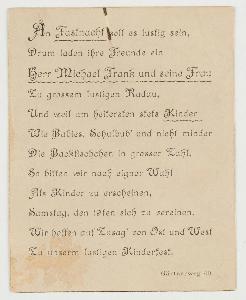 An Fastnacht soll es lustig sein,
Drum laden ihre Freunde ein
Herr Michael Frank und seine Frau
Zu grossem lustigen Radau,
Und weil am heitersten stets Kinder
Wie Babies, Schulbub' und nicht minder
Die Backfischchen in grosser Zahl,
So bitten wir nach eigner Wahl
Als Kinder zu erscheinen,
Samstag, den 18ten sich zu vereinen.
Wir hoffen auf Zusag' von Ost und West
Zu unserm lustigen Kinderfest.
Gärtnerweg 40